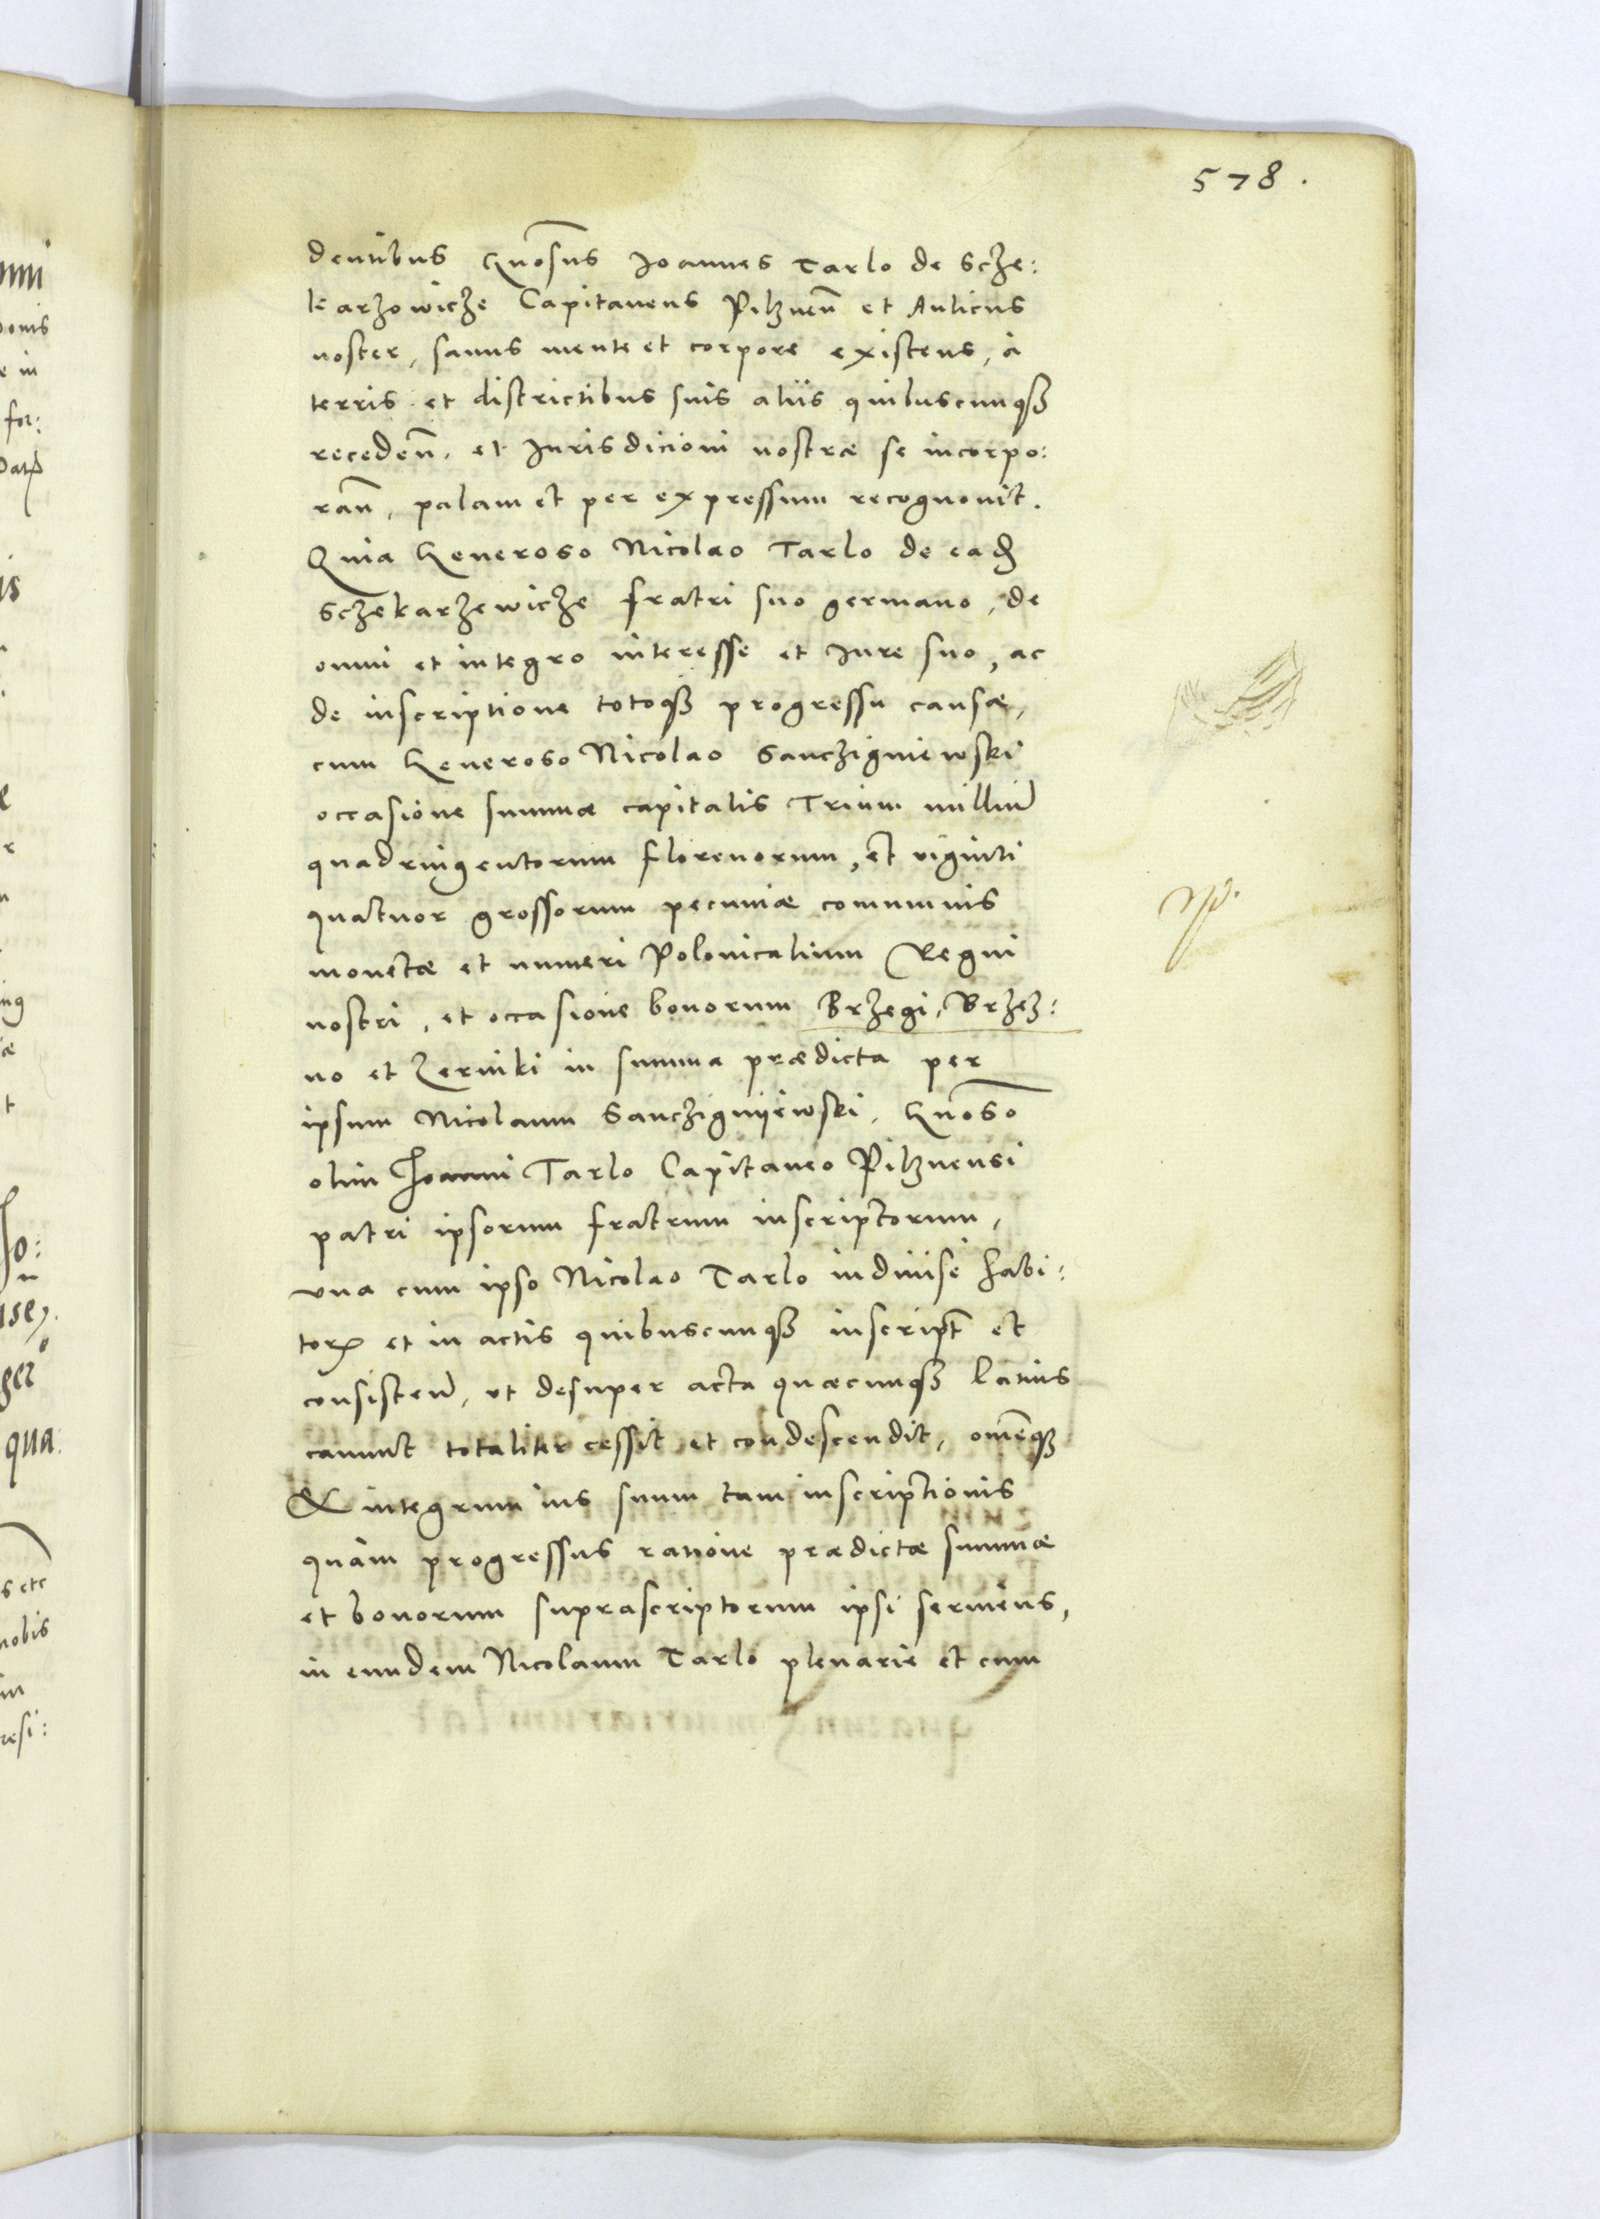 578.
dentibus Gnosus Ioannes Tarlo de Scze:
karzowicze Capitaneus Pilznen̄ et Aulicus
noster, sanus mente et corpore existens, à
terris et districtibus suis aliis quibuscunqȝ
receden̄. et Iurisdicioni nostræ se incorpo:
ran̄, palam et per expressum recognovit.
Quia Generoso Nicolao Tarlo de eadē
Sczekarzewicze fratri suo germano, de
omni et integro interesse et Iure suo, ac
de inscriptione totoqȝ progressu causæ,
cum Generoso Nicolao Sanczigniewski
occasione summæ capitalis Trium milliū
quadringentorum florenorum, et viginti
quatuor grossorum pecuniæ communis
monetæ et numeri Polonicalium Regni
nostri, et occasione bonorum Brzegi, Brzez:
no et Zerniki in summa prædicta per
ipsum Nicolaum Sanczignyiewski, Gnoso
olim Joanni Tarlo Capitaneo Pilznensi
patri ipsorum fratrum inscriptorum,
vna cum ipso Nicolao Tarlo indiuise habi:
torꝝ et in actis quibuscunqȝ inscript et
consisten̄, vt desuper acta quæcunqȝ latius
canunt totaliter cessit et condescendit, omēqȝ
& integrum ius suum tam inscriptionis
quàm progressus ratione prædictæ summæ
et bonorum suprascriptorum ipsi seruiens,
in eundem Nicolaum Tarlo plenarie et cum